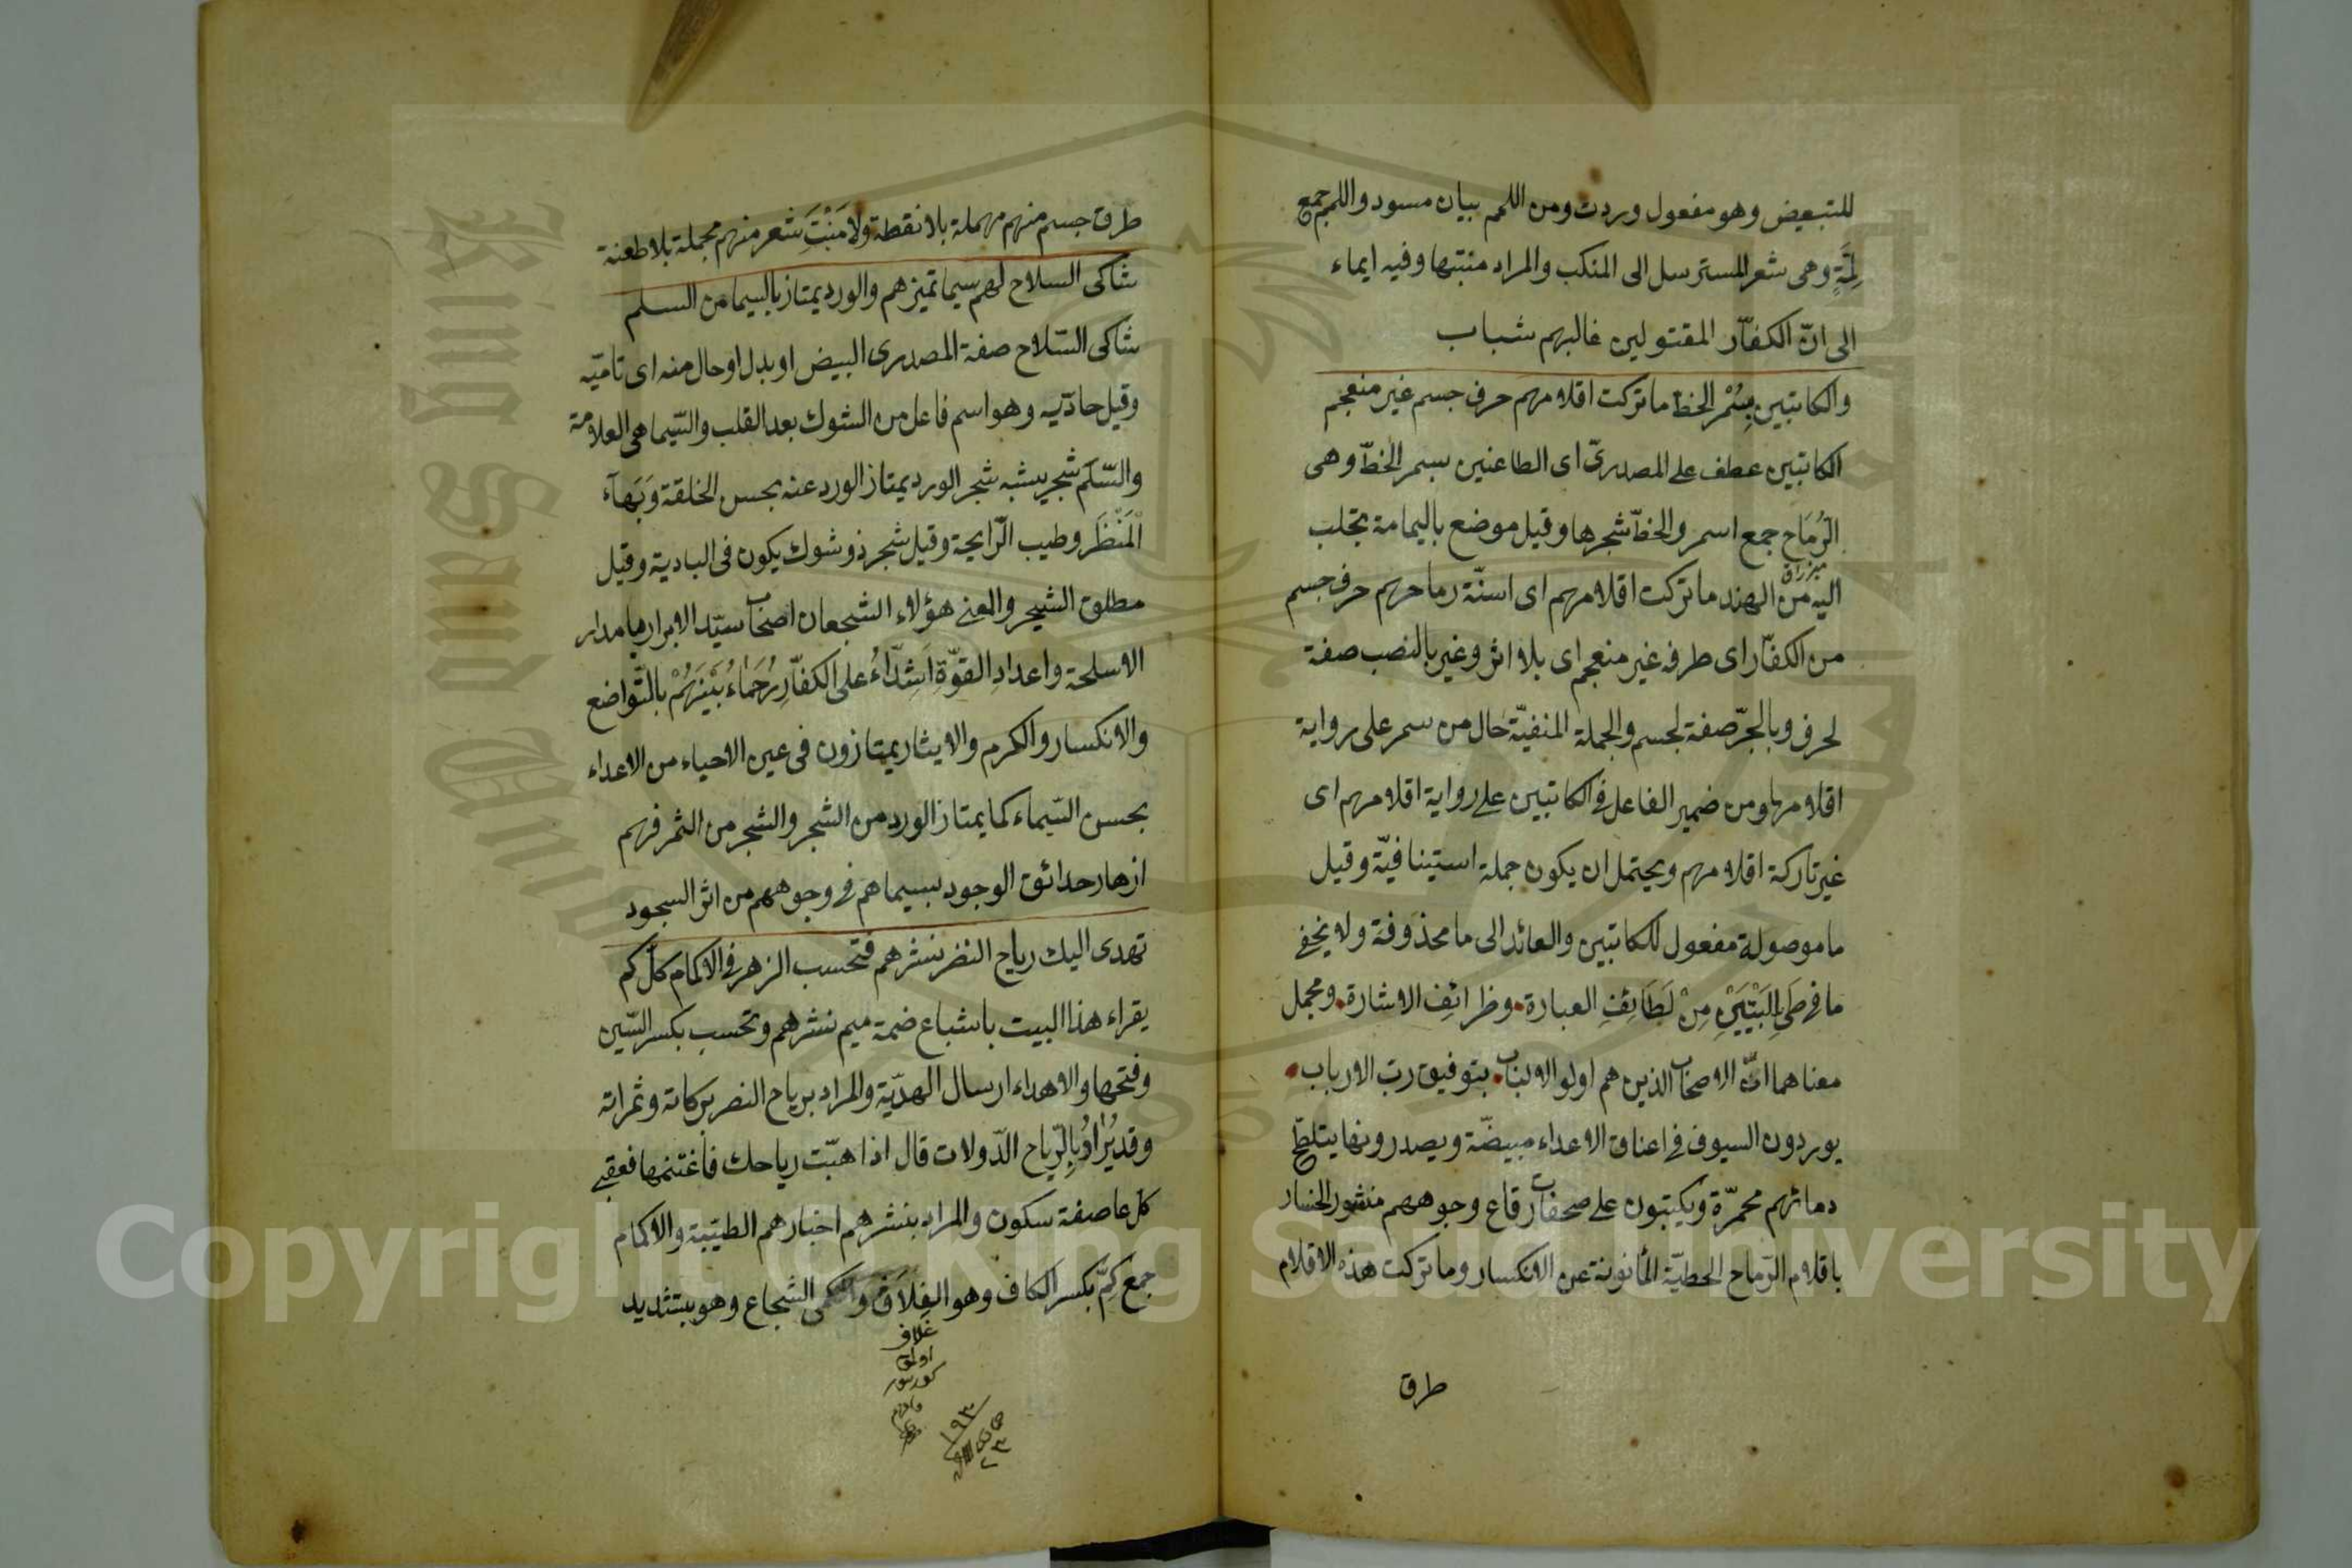 للتبعيض وهو مفعول وردت ومن اللمم بيان مسود واللمم جمع
لِمَّةٍ وهى شعر المسترسل الى المنكب والمراد منبتها وفيه ايماء
الى انّ الكفّار المقتولين غالبهم شباب
والكاتبين بِسُمْرِ الخطّ ما تركت اقلامهم حرف جسم غير منعجم
الكاتبين عطف على المصدرىّ اى الطاعنين بسمر الخطّ وهى
الرُّمَاح جمع اسمر والخطّ شجرها وقيل موضع باليمامة تجلب
اليه من الهند ما تركت اقلامهم اى اسنّة رماحهم حرف جسم
مزراق
من الكفّار اى طرفه غير منعجم اى بلا اثر وغير بالنصب صفة
لحرف وبالجرّ صفة لجسم والجملة المنفيّة حال من سمر على رواية
اقلامها ومن ضمير الفاعل فى الكاتبين على رواية اقلامهم اى
غير تاركة اقلامهم ويحتمل ان يكون جملة استينافيّة وقيل
ما موصولة مفعول للكاتبين والعائد الى ما محذوفة ولا يخفى
ما فى طَىِّ الْبَيْتَيْنِ مِنْ لَطَائِفِ العبارة. وظرائف الاشارة. ومجمل
معناهما انّ الاصحاب الذين هم اولوا الالباب. بتوفيق ربّ الارباب.
يوردون السيوف فى اعناق الاعداء مبيضّة ويصدرونها بتلطّخ
دمائهم محمرّة ويكتبون على صحفات رقاع وجوههم منشور الخسار
باقلام الرّماح الخطيّة المأنونة عن الانكسار وما تركت هذه الاقلام
طرق
طرق جسم منهم مهملة بلا نقطة ولا مَنْبَتَ شعر منهم مجملة بلا طعنة
شاكى السلاح لهم سيما تميزهم والورد يمتاز بالسيما من السلم
شاكى السّلاح صفة المصدرى البيض او بدل او حال منه اى تامّيه
وقيل حادّيه وهو اسم فاعل من الشوك بعد القلب والسّيما هى العلامة
والسّلَم شجر يشبه شجر الورد يمتاز الورد عنه بحسن الخلقة وَبَهآء
الْمَنْظَرِ وطيب الرّايحة وقيل شجر ذو شوك يكون فى البادية وقيل
مطلق الشجر والمعنى هؤلاء الشجعان اصحاب سيّد الابرار بامدار
الاسلحة واعدادِ القوّةِ اَشِدّاَءُ على الكفّارِ رُحَمَاءُ بَيْنَهُمْ بالتّواضع
والانكسار والكرم والايثار يمتازون فى عين الاحياء من الاعداء
بحسن السّيماء كما يمتاز الورد من الشجر والشجر من الثمر فهم
ازهار حدائق الوجود بسيماهم فى وجوههم من اثر السجود
تهدى اليك رياح النصر نشرهم فتحسب الزهر فى الاكمام كلّ كم
يقراء هذا البيت باشباع ضمة ميم نشرهم وتحسب بكسر السّين
وفتحها والاهداء ارسال الهديّة والمراد برياح النصر بركاته وثمراته
وقد يُرَادُ بِالرِّياح الدّولات قال اذا هبّت رياحك فاغتنمها فعقبى
كل عاصفة سكون والمراد بنشرهم اخبارهم الطيّبة والاكمام
جمع كِمّ بكسر الكاف وهو الغِلاَف والكمى الشجاع وهو بتشديد
غلاف
١٩٣
Copyright © King Saud University